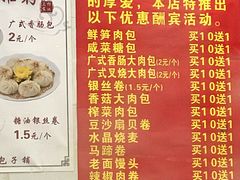 广式香肠包
2元/个
糖油银丝卷
1.5元/个
包子铺
的厚爱，本店特推出
以下优惠酬宾活动。
鲜笋肉包 买10送1
咸菜糖包 买10送1
广式香肠大肉包(2元/个) 买10送1
广式叉烧大肉包(2元/个) 买10送1
银丝卷(1.5元/个) 买10送1
香菇大肉包 买10送1
榨菜肉包 买10送1
豆沙扇贝卷 买10送1
水晶烧麦 买10送1
马蹄卷 买10送1
老面馒头 买10送1
辣椒肉卷 买10送1